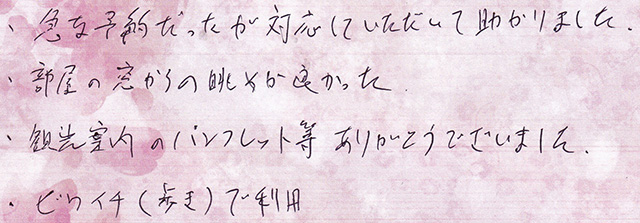 ・急な予約だったが対応していただいて助かりました.
・部屋の窓からの眺めが良かった.
・観光案内のパンフレット等ありがとうございました.
・ビワイチ(歩き)で利用